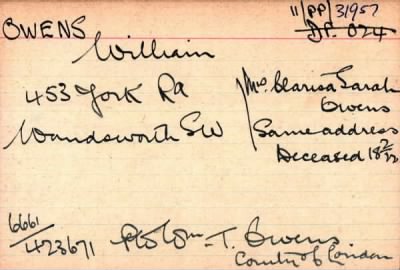 11/PP/31957
OWENS
DP. 024
William
453 York Rd
Wandsworth SW
Mrs Clarisa Sarah
Owens
Same address
Deceased 18/2/22
6661/423671
Pte Wm. T. Owens
County of London